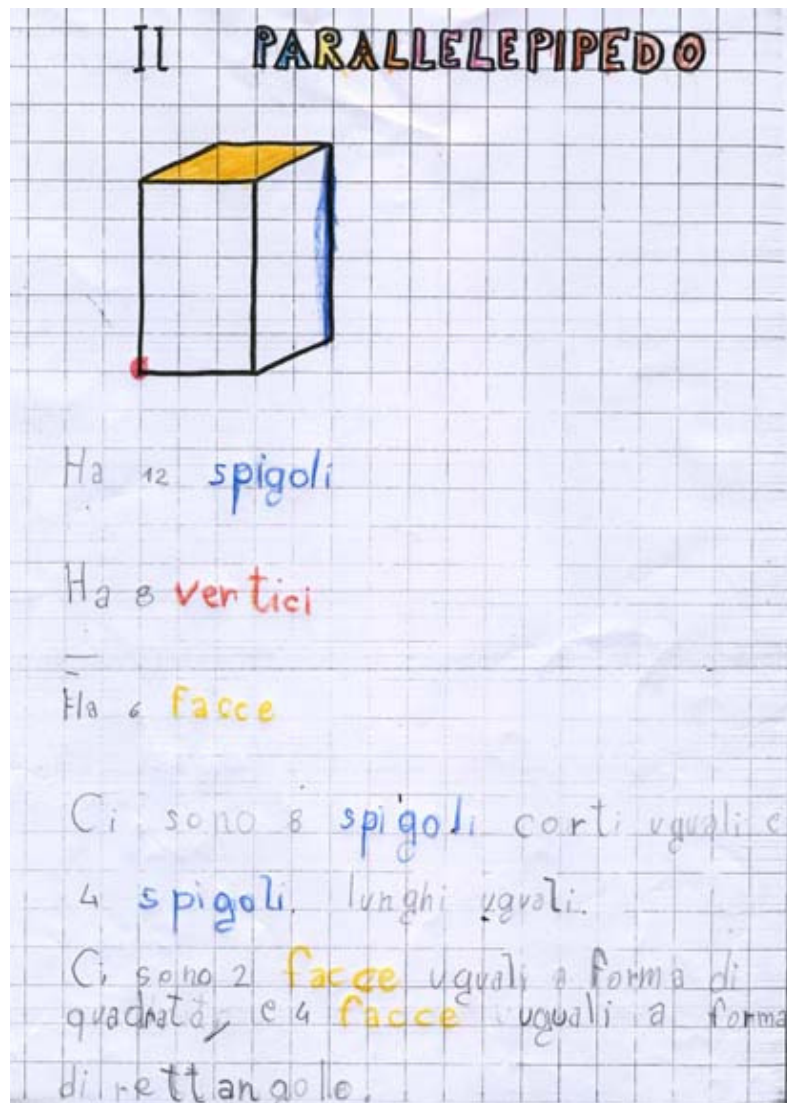 Il PARALLELEPIPEDO
Ha 12 spigoli
Ha 8 vertici
Ha 6 facce
Ci sono 8 spigoli corti uguali e
4 spigoli. lunghi uguali.
Ci sono 2 facce uguali a forma di
quadrato, e 4 facce uguali a forma
di rettangolo.